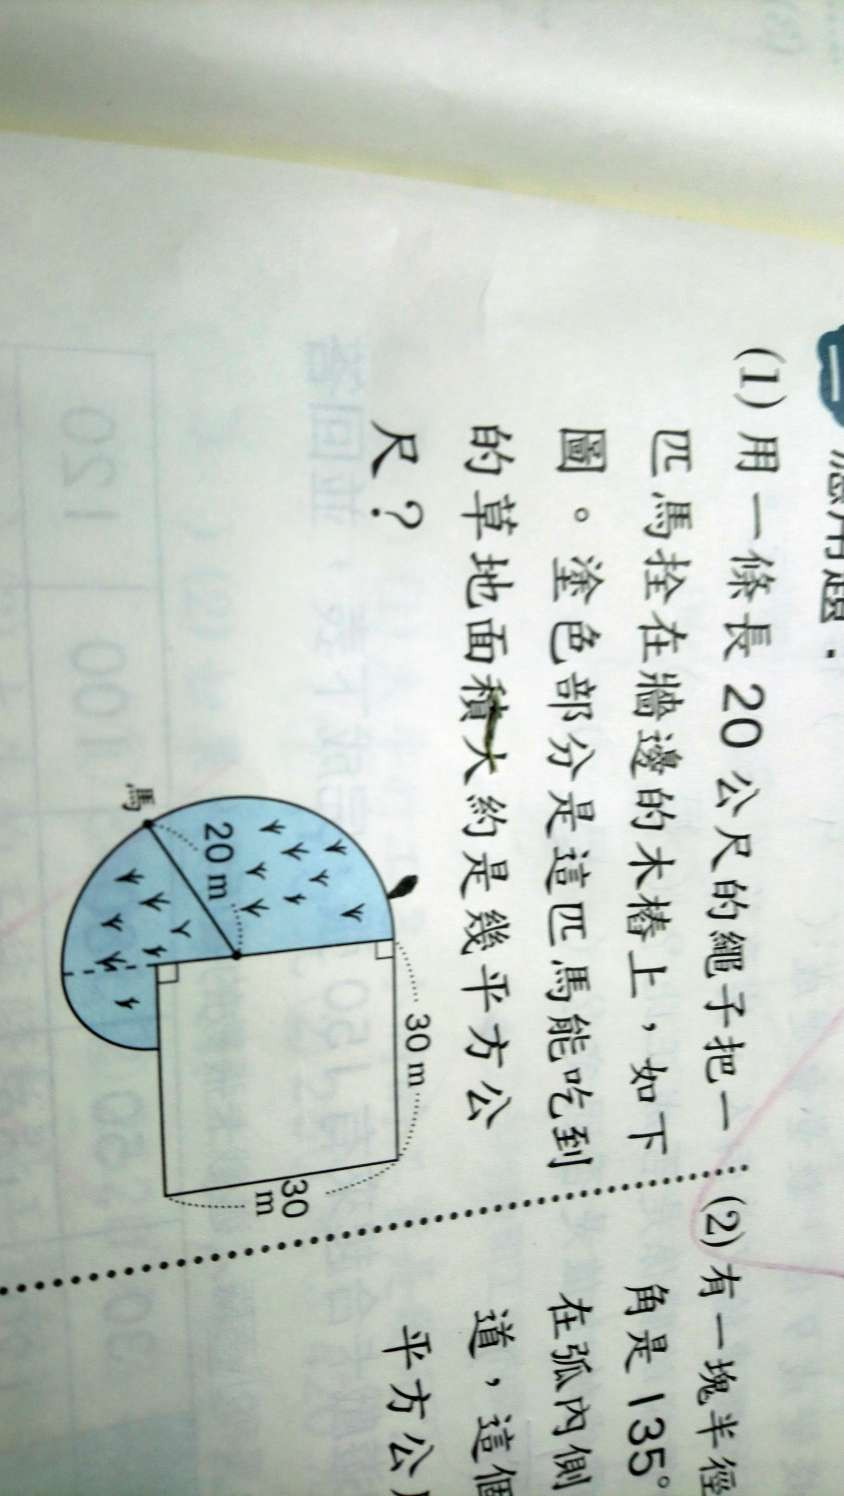 應用題：
(1) 用一條長 20 公尺的繩子把一
匹馬拴在牆邊的木樁上，如下
圖。塗色部分是這匹馬能吃到
的草地面積大約是幾平方公
尺？
馬
20 m
30 m
30
m
(2) 有一塊半徑
角是 135°
在弧內側
道，這個
平方公